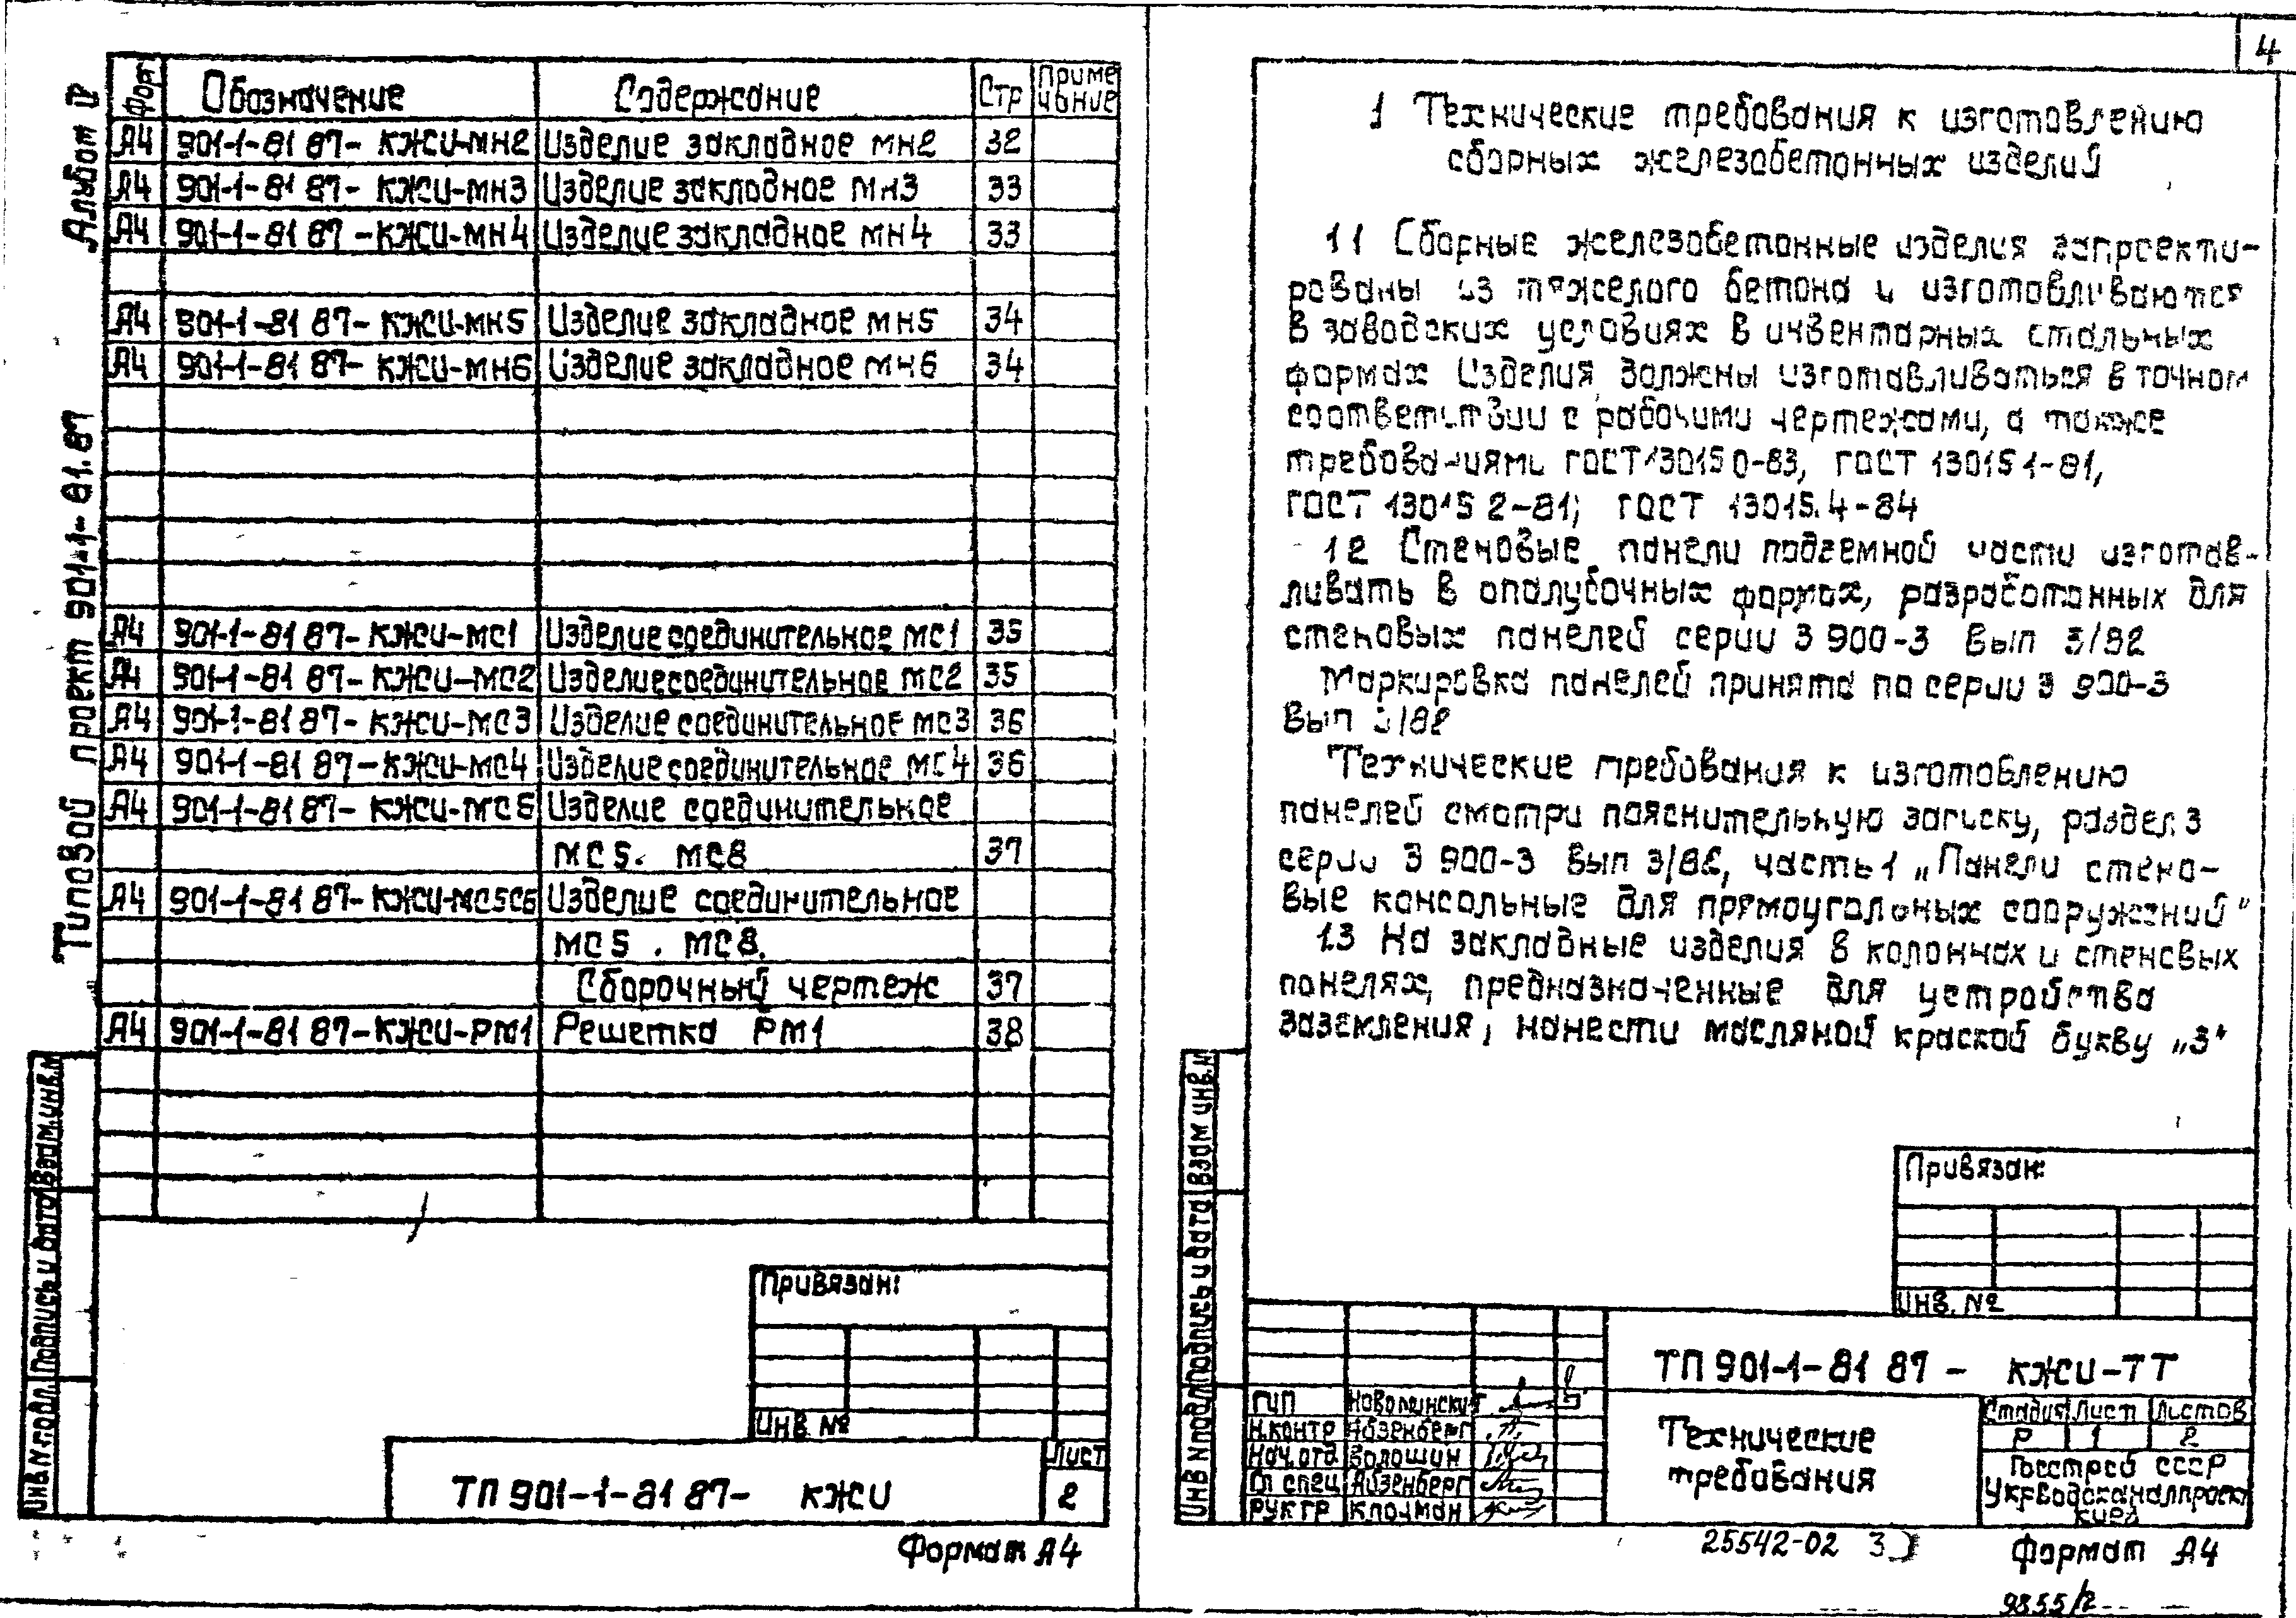 Альбом IV
Типовой проект 901-1-81.87
Фор Обозначение Содержание Стр Приме чание
А4 901-1-81 87- КЖСИ-МН2 Изделие закладное МН2 32
А4 901-1-81 87- КЖСИ-МН3 Изделие закладное МН3 33
А4 901-1-81 87 -КЖСИ-МН4 Изделие закладное МН4 33
А4 901-1-81 87- КЖСИ-МН5 Изделие закладное МН5 34
А4 901-1-81 87- КЖСИ-МН6 Изделие закладное МН6 34
А4 901-1-81 87- КЖСИ-МС1 Изделие соединительное МС1 35
А4 901-1-81 87- КЖСИ-МС2 Изделие соединительное МС2 35
А4 901-1-81 87- КЖСИ-МС3 Изделие соединительное МС3 36
А4 901-1-81 87-КЖСИ-МС4 Изделие соединительное МС4 36
А4 901-1-81 87- КЖСИ-МС5 Изделие соединительное
МС5. МС8 37
А4 901-1-81 87-КЖСИ-МС5СБ Изделие соединительное
МС5 . МС8.
Сборочный чертеж 37
А4 901-1-81 87-КЖСИ-РМ1 Решетка РМ1 38
Инв N подл. Подпись и дата Взам. инв. N
Привязан:
Инв №
ТП 901-1-81 87- КЖСИ
Лист
2
Формат А4
4
1 Технические требования к изготовлению
сборных железобетонных изделий
1 1 Сборные железобетонные изделия запроекти-
рованы из тяжелого бетона и изготовливаются
в заводских условиях в инвентарных стальных
формах Изделия должны изготавливаться в точном
соответствии с рабочими чертежами, а также
требованиями ГОСТ 13015 0-83, ГОСТ 13015 1-81,
ГОСТ 13015 2-81; ГОСТ 13015.4-84
1 2 Стеновые панели подземной части изготав-
ливать в опалубочных формах, разработанных для
стеновых панелей серии 3 900-3 вып 3/82
Маркировка панелей принята по серии 3 900-3
вып 3/82
Технические требования к изготовлению
панелей смотри пояснительную записку, раздел 3
серии 3 900-3 вып 3/82, часть 1 „Панели стено-
вые консольные для прямоугольных сооружений"
1.3 На закладные изделия в колоннах и стеновых
панелях, предназначенные для устройства
заземления, нанести масляной краской букву „З"
Инв N подл Подпись и дата Взам инв. N
Привязан:
Инв. №
ТП 901-1-81 87 - КЖСИ-ТТ
ГИП Новолинский
Н.контр Айзенберг
Нач. отд Волошин
Гл спец Айзенберг
Рук гр Клоцман
Технические
требования
Стадия Лист Листов
Р 1 2
Госстрой СССР
Укрводоканалпроект
Киев
25542-02 3
Формат А4
9855/2